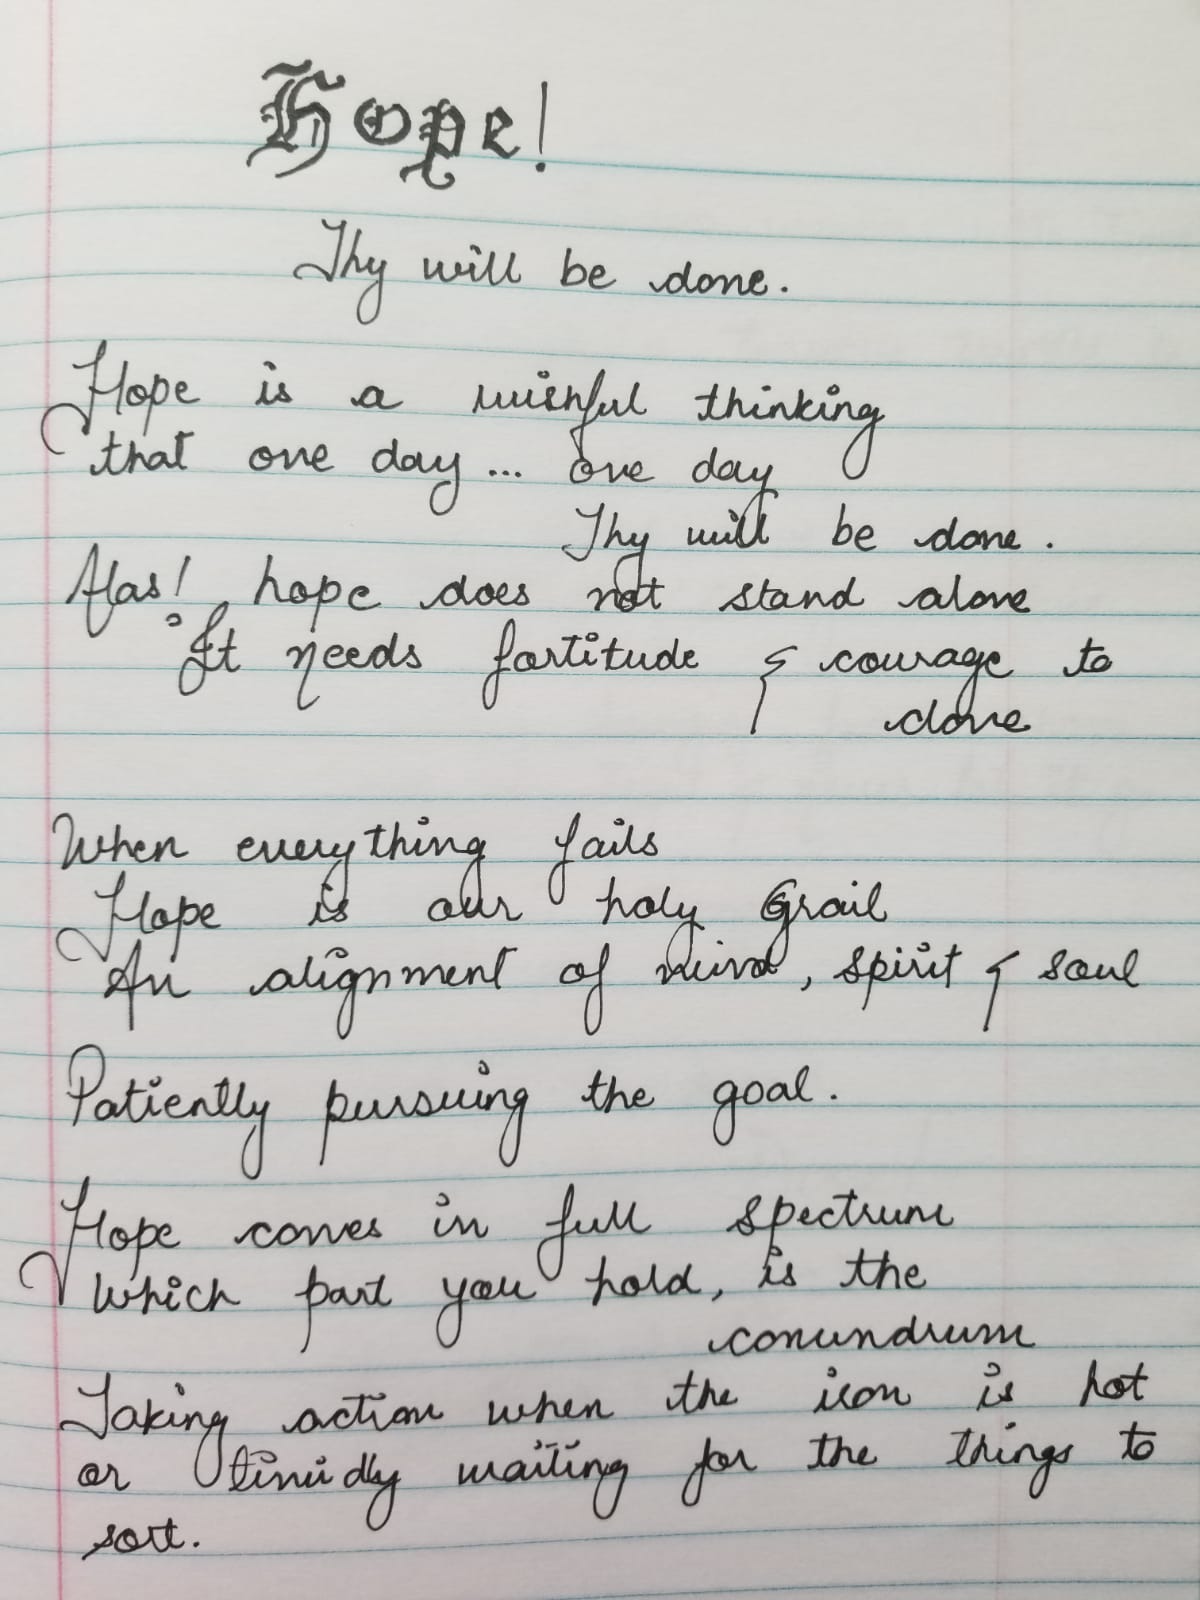 Hope!
Thy will be done.
Hope is a wishful thinking
that one day... one day
Thy will be done.
Alas! hope does not stand alone
It needs fortitude & courage to
done
When everything fails
Hope is our holy Grail
An alignment of mind, spirit & soul
Patiently pursuing the goal.
Hope comes in full spectrum
Which part you hold, is the
conundrum
Taking action when the iron is hot
or timidly waiting for the things to
sort.